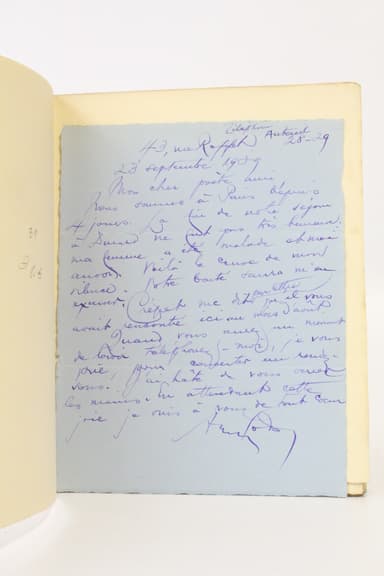 43, rue Raffet Auteuil
28-29
23 septembre 1929
Mon cher poète ami
Nous sommes à Paris depuis
4 jours. La fin de notre séjour
à ne fut pas très heureux.
ma femme a été malade et moi
aussi. Voilà la cause de mon
silence. Votre bonté saura m'en
excuser. me dit qu'il vous
avait rencontré ici au mois d'août
Quand vous aurez un moment
de loisir téléphonez-moi, je vous
prie, pour concerter un rendez-
vous. J'ai hâte de vous serrer
les mains. En attendant cette
joie je suis à vous de tout cœur